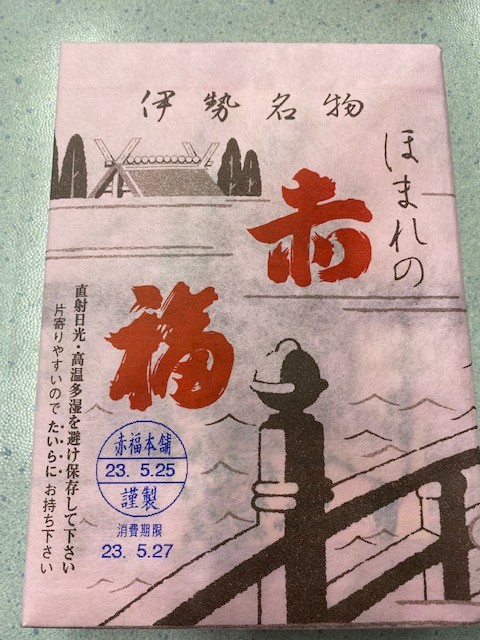 伊勢名物
ほまれの
赤
福
直射日光・高温多湿を避け保存して下さい
片寄りやすいので たいらに お持ち下さい
赤福本舗
23. 5.25
謹製
消費期限
23. 5.27